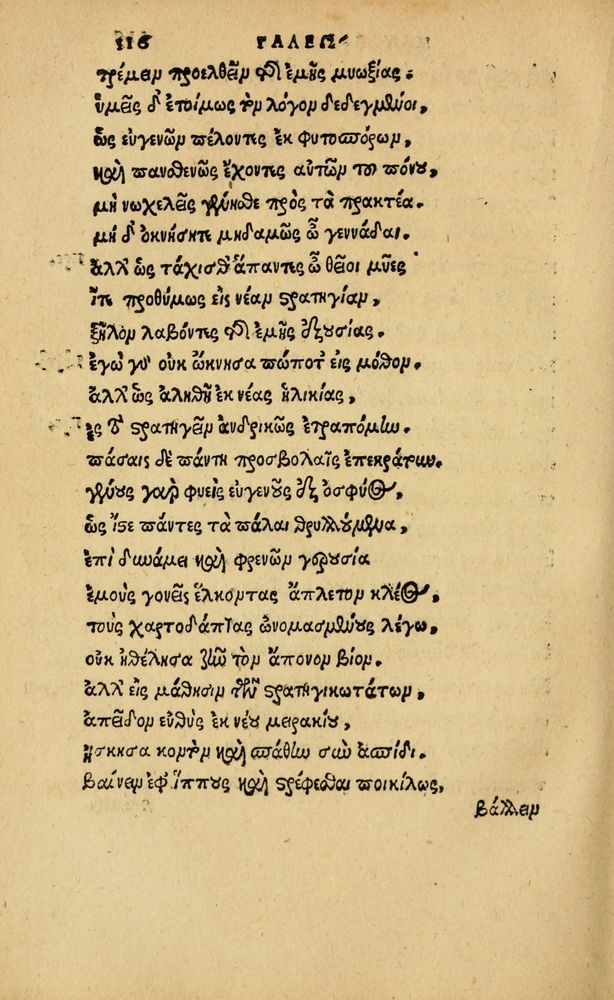 116 ΓΑΛΕΩ
τρέμειν προελθεῖν τῆς ἐμῆς μυωξίας.
ὑμεῖς δ' ἑτοίμως τὸν λόγον δεδεγμένοι,
ὡς εὐγενῶν πέλοντες ἐκ φυτοσπόρων,
καὶ πανσθενῶς ἔχοντες αὐτῶν τοῦ πόνου,
μὴ νωχελεῖς γίνησθε πρὸς τὰ πρακτέα.
μὴ δ' ὀκνήσητε μηδαμῶς ὦ γεννάδαι.
ἀλλ' ὡς τάχισθ' ἅπαντες ὦ θεῖοι μῦες
ἴτε προθύμως εἰς νέαν στρατηγίαν,
ζῆλον λαβόντες τῆς ἐμῆς ἐξουσίας.
ἐγὼ γὰρ οὐκ ὤκνησα πώποτ' εἰς μόθον.
ἀλλ' ὡς ἀληθῆ ἐκ νέας ἡλικίας,
ἐς τὸ στρατηγεῖν ἀνδρικῶς ἐτραπόμην.
πάσαις δὲ πάντη προσβολαῖς ἐπεκράτουν.
γένους γὰρ φυεὶς εὐγενοῦς ἐξ ὀσφύος,
ὡς ἴστε πάντες τὰ πάλαι θρυλλούμενα,
ἐπὶ δυνάμει καὶ φρενῶν γερουσία
ἐμοὺς γονεῖς ἕλκοντας ἄπλετον κλέος,
τοὺς χαρτοδάπτας ὠνομασμένους λέγω,
οὐκ ἠθέλησα ζῆν τὸν ἄπονον βίον.
ἀλλ' εἰς μάθησιν τῶν στρατηγικωτάτων,
ἀπεῖδον εὐθὺς ἐκ νέου μειρακίου,
ἤσκησα κοντὸν καὶ σπάθην σὺν ἀσπίδι.
βαίνειν ἐφ' ἵππους καὶ στρέφεσθαι ποικίλως,
βάλλειν